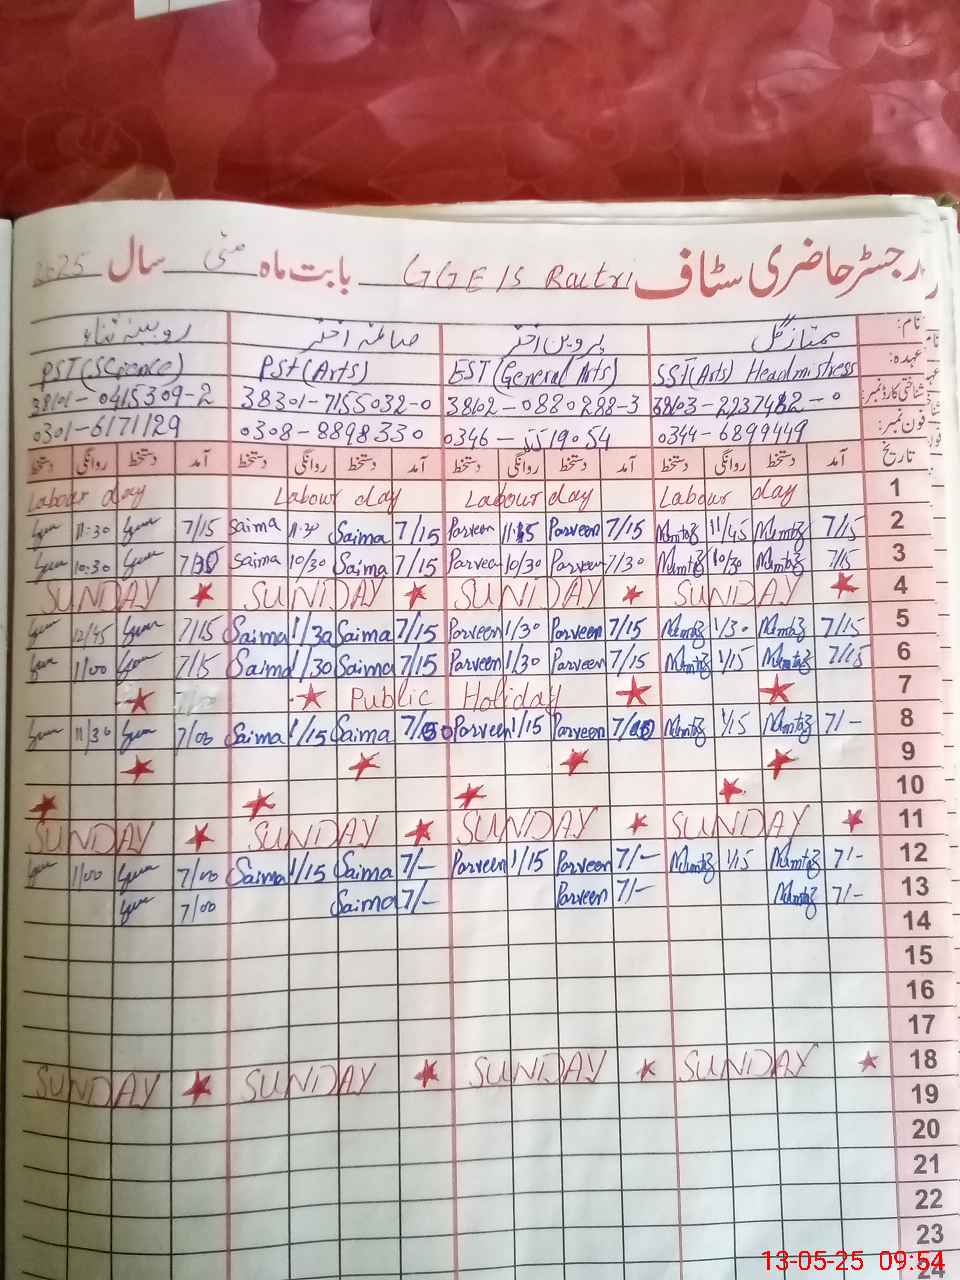 رجسٹر حاضری سٹاف GGE/S Raitri بابت ماہ مئی سال 2025
نام: ممتاز گل پروین اختر صائمہ اختر روبینہ
عہدہ: SST(Arts) Headmistress EST(General Arts) PST(Arts) PST(Science)
شناختی کارڈ نمبر: 38103-2237482-0 38102-0880288-3 38301-7155032-0 38101-0415309-2
فون نمبر: 0344-6899449 0346-5519054 0308-8898330 0301-6171129
تاریخ آمد دستخط روانگی دستخط آمد دستخط روانگی دستخط آمد دستخط روانگی دستخط آمد دستخط روانگی دستخط
Labour day Labour day Labour day Labour day 1
11:30 7/15 Saima 11:30 Saima 7/15 Parveen 11:45 Parveen 7/15 Mumtaz 11/45 Mumtaz 7/15 2
10:30 7/30 Saima 10/30 Saima 7/15 Parveen 10/30 Parveen 7/30 Mumtaz 10/30 Mumtaz 7/15 3
SUNDAY SUNDAY SUNDAY SUNDAY 4
12/45 7/15 Saima 1/30 Saima 7/15 Parveen 1/30 Parveen 7/15 Mumtaz 1/30 Mumtaz 7/15 5
11/00 7/15 Saima 1/30 Saima 7/15 Parveen 1/30 Parveen 7/15 Mumtaz 1/15 Mumtaz 7/15 6
Public Holiday 7
11/30 7/00 Saima 1/15 Saima Parveen 1/15 Parveen Mumtaz 1/15 Mumtaz 7/- 8
9
10
SUNDAY SUNDAY SUNDAY SUNDAY 11
7/00 Saima 1/15 Saima 7/- Parveen 1/15 Parveen 7/- Mumtaz 1/15 Mumtaz 7/- 12
7/00 Saima 7/- Parveen 7/- Mumtaz 7/- 13
14
15
16
17
SUNDAY SUNDAY SUNDAY SUNDAY 18
19
20
21
22
23
24
13-05-25 09:54